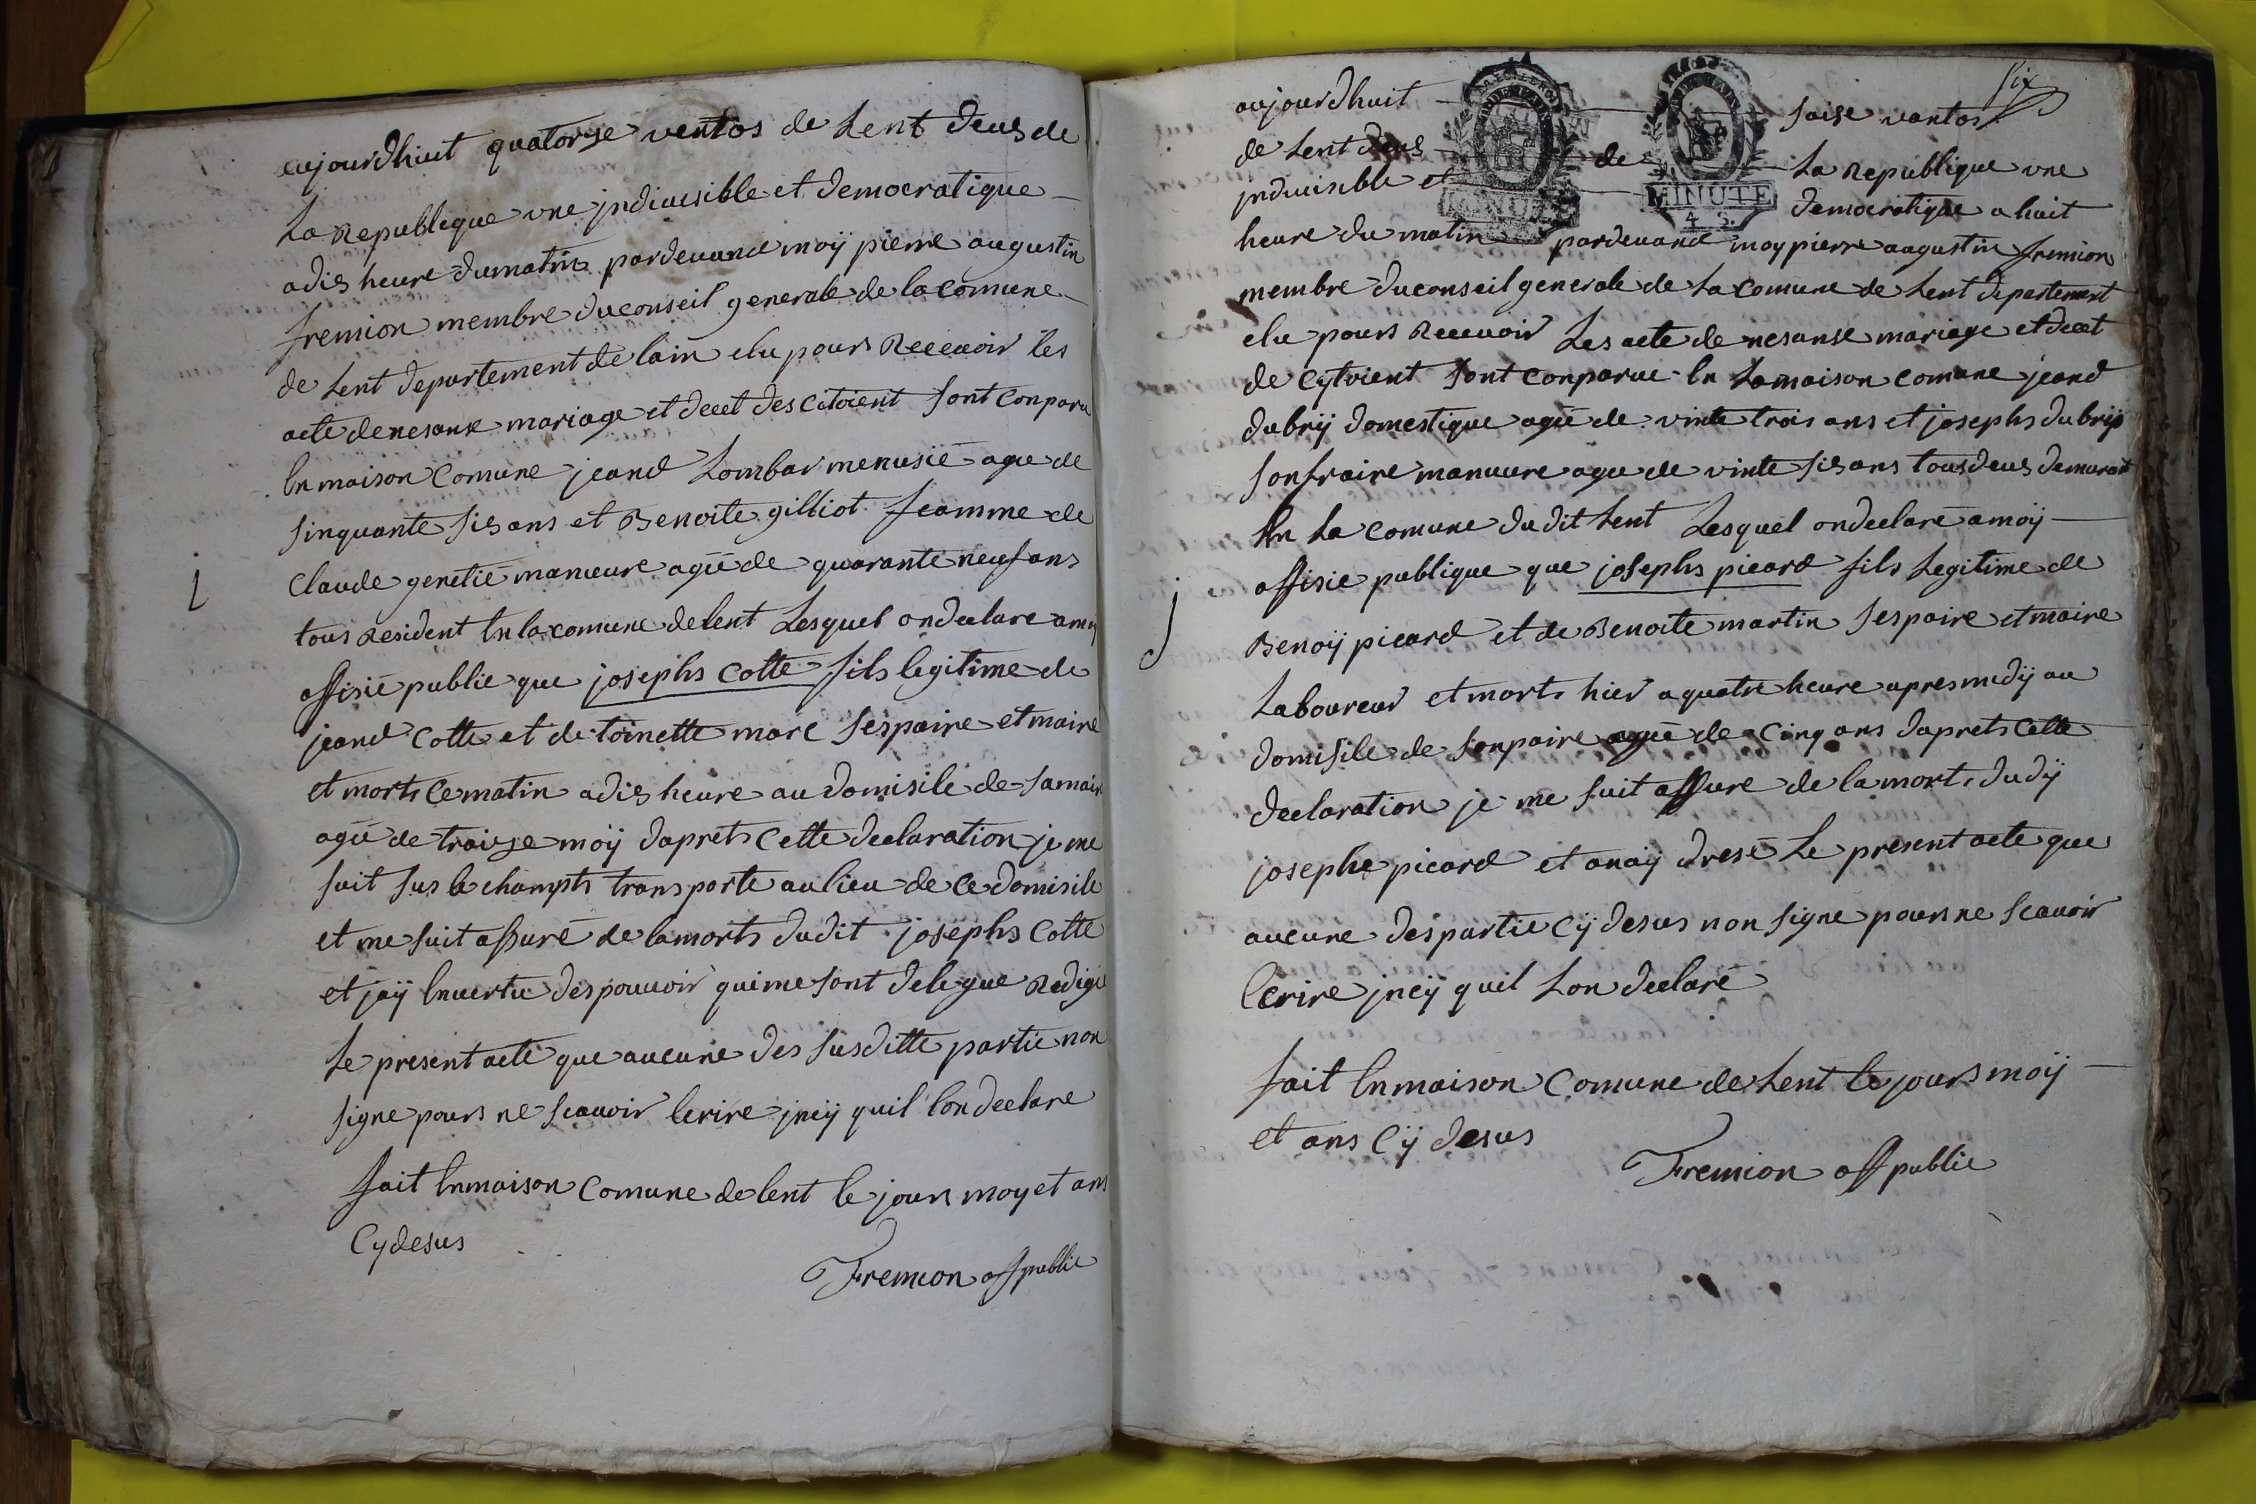 aujourdhuit quatorse ventos de Lent deus de
La Republeque vne jndiuisible et democratique
adis heure dumatin pardeuand moÿ pierre augustin
fremion membre duconseil generale de la comune
de Lent departement de lain elu pours Receuoir les
acte denesanse mariage et decet des citoient sont conparu
En maison Comune jeand Lombar menusié agé de
sinquante sis ans et Benoite gilliot feamme de
Claude genetié manuure agée de quarante neuf ans
tous Resident En la comune de lent Lesquel ondeclare amoy
offisié public que josephs Cotte fils legitime de
jeand Cotte et de toinette marc ses paire et maire
et morts Cematin adis heure au domisile de sa maire
agé de traise moÿ daprets Cette declaration je me
suit sus le champts transporte au lieu de ce domisile
et me suit assuré de lamorts dudit josephs Cotte
et jaÿ Enuertu des pouuoir quime sont delegue Redige
Le present acte que aucune des susditte partie non
signe pours ne scauoir Ecrire jncÿ quil lon declare
fait Enmaison Comune de lent le jours moy et ans
Cy desus
Fremion off public
six
aujourdhuit saise vantos
de Lent deus de La Republique vne
jndiuisible et democratique a huit
MINUTE
4 S.
heure du matin pardeuand moy pierre augustin fremion
membre duconseil generale de La comune de Lent departement
elu pours Receuoir Les acte de nesanse mariage et decet
de Cytoient sont conparue En Lamaison comune jeand
dubrÿ domestique agé de vinte trois ans et josephs dubrÿ
sonfraire manuure agé de vinte sis ans tous deus demurant
En La comune du dit Lent Lesquel ondeclaré amoÿ
offisie publique que josephs picard fils Legitime de
Benoÿ picard et de Benoite martin ses paire et maire
Laboureur et morts hier a quatre heure apres midÿ au
domisile de sonpaire agé de Cinq ans daprets Cette
declaration je me suit assure de la morts dudÿ
josephe picard et anaÿ dresé Le present acte que
aucune des partie Cÿ desus non signe pours ne scauoir
Ecrire jncÿ quil Lon declaré
fait Enmaison Comune de Lent le jours moÿ
et ans Cÿ desus
Fremion off public